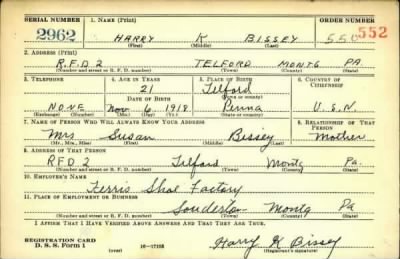 SERIAL NUMBER 1. NAME (Print) ORDER NUMBER
2962 HARRY K BISSEY 550 552
(First) (Middle) (Last)
2. ADDRESS (Print)
R.F.D 2 TELFORD MONTG PA.
(Number and street or R. F. D. number) (Town) (County) (State)
3. TELEPHONE 4. AGE IN YEARS 5. PLACE OF BIRTH 6. COUNTRY OF CITIZENSHIP
21 Telford
DATE OF BIRTH (Town or county)
NONE Nov 6 1918 Penna U.S.A.
(Exchange) (Number) (Mo.) (Day) (Yr.) (State or country)
7. NAME OF PERSON WHO WILL ALWAYS KNOW YOUR ADDRESS 8. RELATIONSHIP OF THAT PERSON
Mrs Susan Bissey Mother
(Mr., Mrs., Miss) (First) (Middle) (Last)
9. ADDRESS OF THAT PERSON
RFD 2 Telford Montg Pa.
(Number and street or R. F. D. number) (Town) (County) (State)
10. EMPLOYER'S NAME
Ferris Shoe Factory
11. PLACE OF EMPLOYMENT OR BUSINESS
Souderton Montg Pa
(Number and street or R. F. D. number) (Town) (County) (State)
I AFFIRM THAT I HAVE VERIFIED ABOVE ANSWERS AND THAT THEY ARE TRUE.
REGISTRATION CARD
D. S. S. Form 1 16-17105 Harry K Bissey